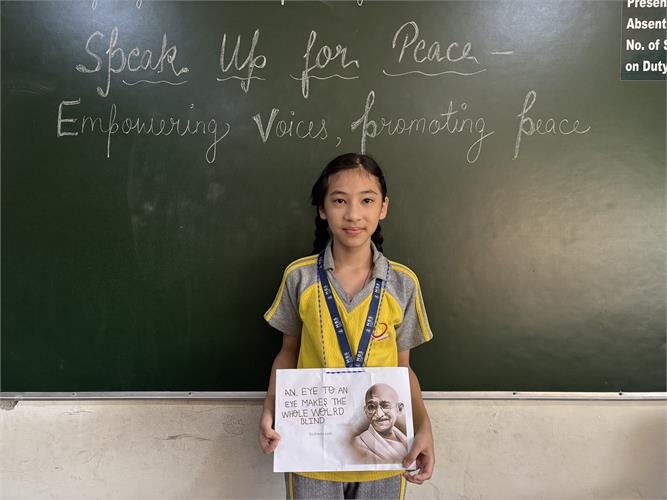 Speak Up for Peace -
Empowering Voices, promoting peace
Presen
Absent
No. of S
on Duty
MRS
AN, EYE TO AN
EYE MAKES THE
WHOLE WOLRD
BLIND